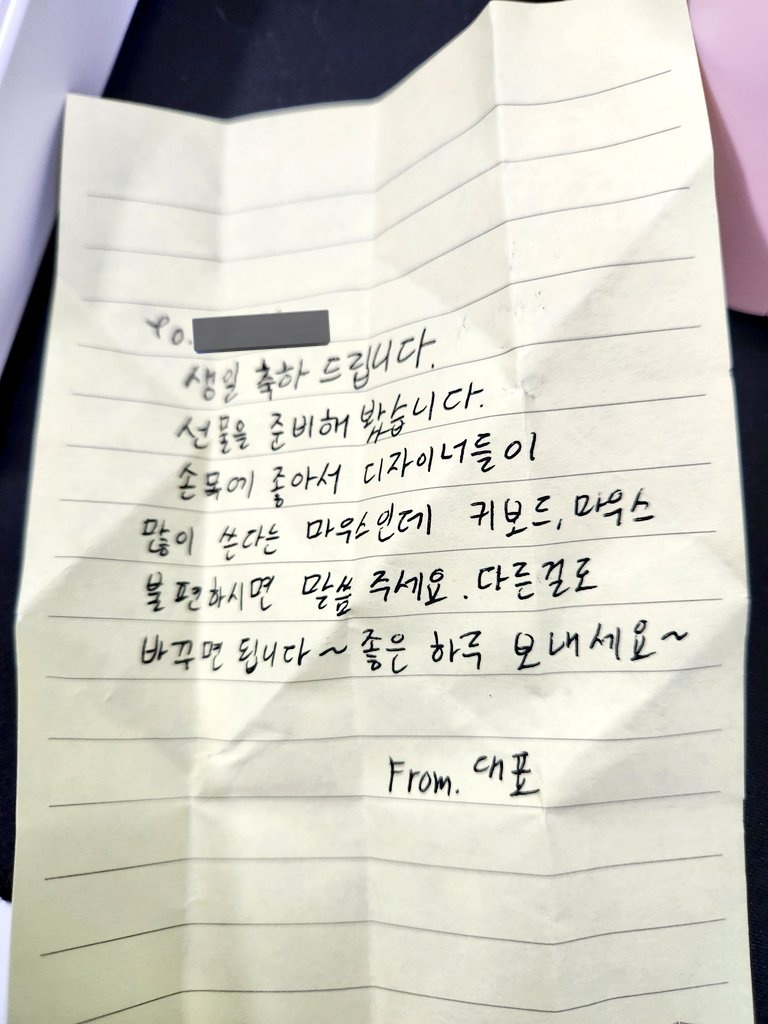 To.
생일 축하 드립니다.
선물을 준비해 봤습니다.
손목에 좋아서 디자이너들이
많이 쓴다는 마우스인데 키보드, 마우스
불편하시면 말씀 주세요. 다른걸로
바꾸면 됩니다~ 좋은 하루 보내세요~
From. 대표